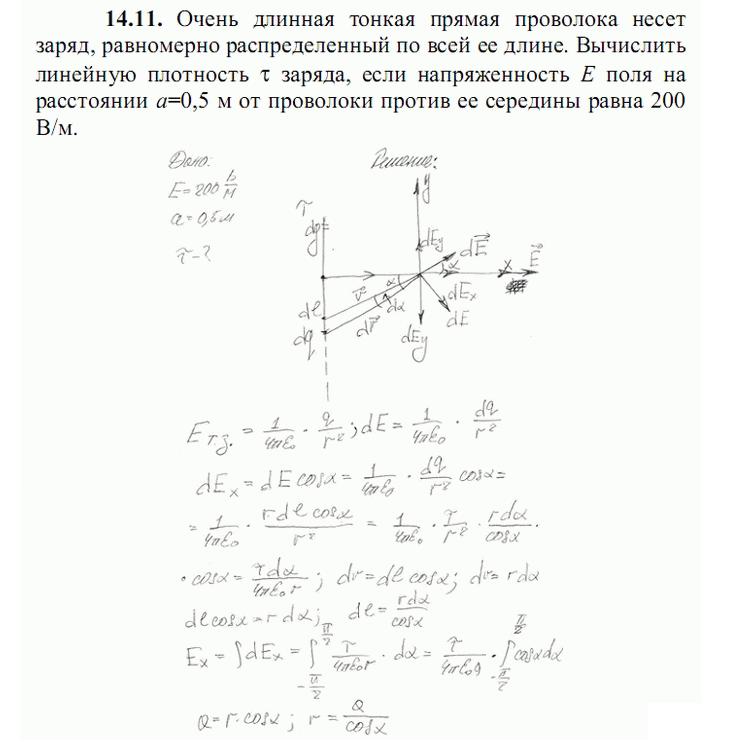 14.11. Очень длинная тонкая прямая проволока несет
заряд, равномерно распределенный по всей ее длине. Вычислить
линейную плотность τ заряда, если напряженность E поля на
расстоянии a=0,5 м от проволоки против ее середины равна 200
В/м.
Дано:
E = 200 В/м
a = 0,5 м
τ - ?
Решение:
y
τ
dq
dEy
dE⃗
α
x
E⃗
r⃗
α
dα
dEx
dl
dr⃗
dE
dq
dEy
Eт.з. = 1/4πε₀ · q/r²; dE = 1/4πε₀ · dq/r²
dEx = dE cosα = 1/4πε₀ · dq/r² cosα =
= 1/4πε₀ · τ·dl cosα/r² = 1/4πε₀ · τ/r² · rdα/cosα ·
· cosα = τdα/4πε₀r; dr = dl cosα; dr = rdα
dl cosα = r dα; dl = rdα/cosα
Ex = ∫dEx = ∫_{-π/2}^{π/2} τ/4πε₀r · dα = τ/4πε₀a · ∫_{-π/2}^{π/2} cosαdα
a = r·cosα; r = a/cosα